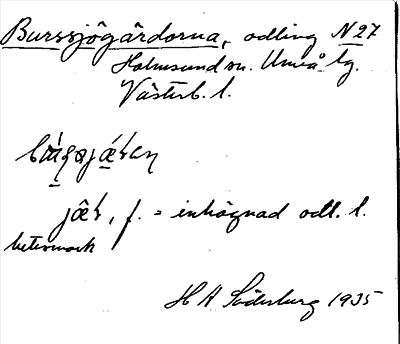 Burssjögårdorna, odling N27
Holmsund sn. Umeå tg.
Västerb. l.
jæ̂r, f. = inhägnad odl. l.
betesmark
H H Söderburg 1935